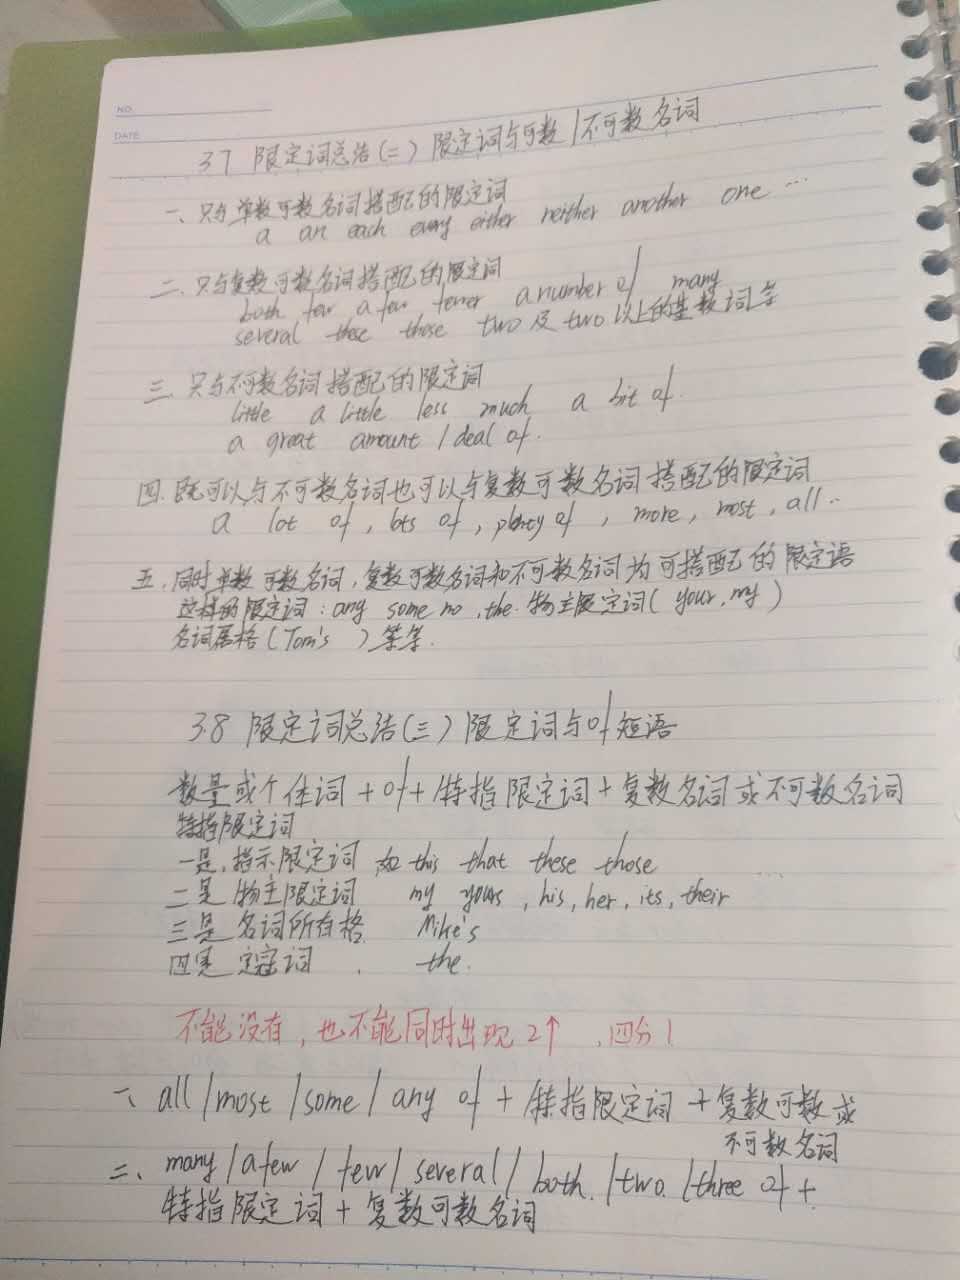 NO.
DATE
37 限定词总结(二) 限定词与可数/不可数名词
一、只与单数可数名词搭配的限定词
a an each every either neither another one …
二、只与复数可数名词搭配的限定词
both few a few fewer a number of many
several these those two 及 two 以上的基数词等
三、只与不可数名词搭配的限定词
little a little less much a bit of
a great amount / deal of.
四、既可以与不可数名词也可以与复数可数名词搭配的限定词
a lot of, lots of, plenty of, more, most, all ..
五、同时单数可数名词,复数可数名词和不可数名词为可搭配的限定语
这样的限定词: any some no, the. 物主限定词( your, my )
名词属格(Tom's )等等.
38 限定词总结(三) 限定词与of短语
数量或个体词 + of + 特指限定词 + 复数名词或不可数名词
特指限定词
一是.指示限定词 如 this that these those
二是 物主限定词 my yours, his, her, its, their
三是 名词所有格 Mike's
四是 定冠词 the.
不能没有, 也不能同时出现2个, 四分1
一、all / most / some / any of + 特指限定词 + 复数可数或
不可数名词
二、many / a few / few / several / both. / two. / three of +
特指限定词 + 复数可数名词